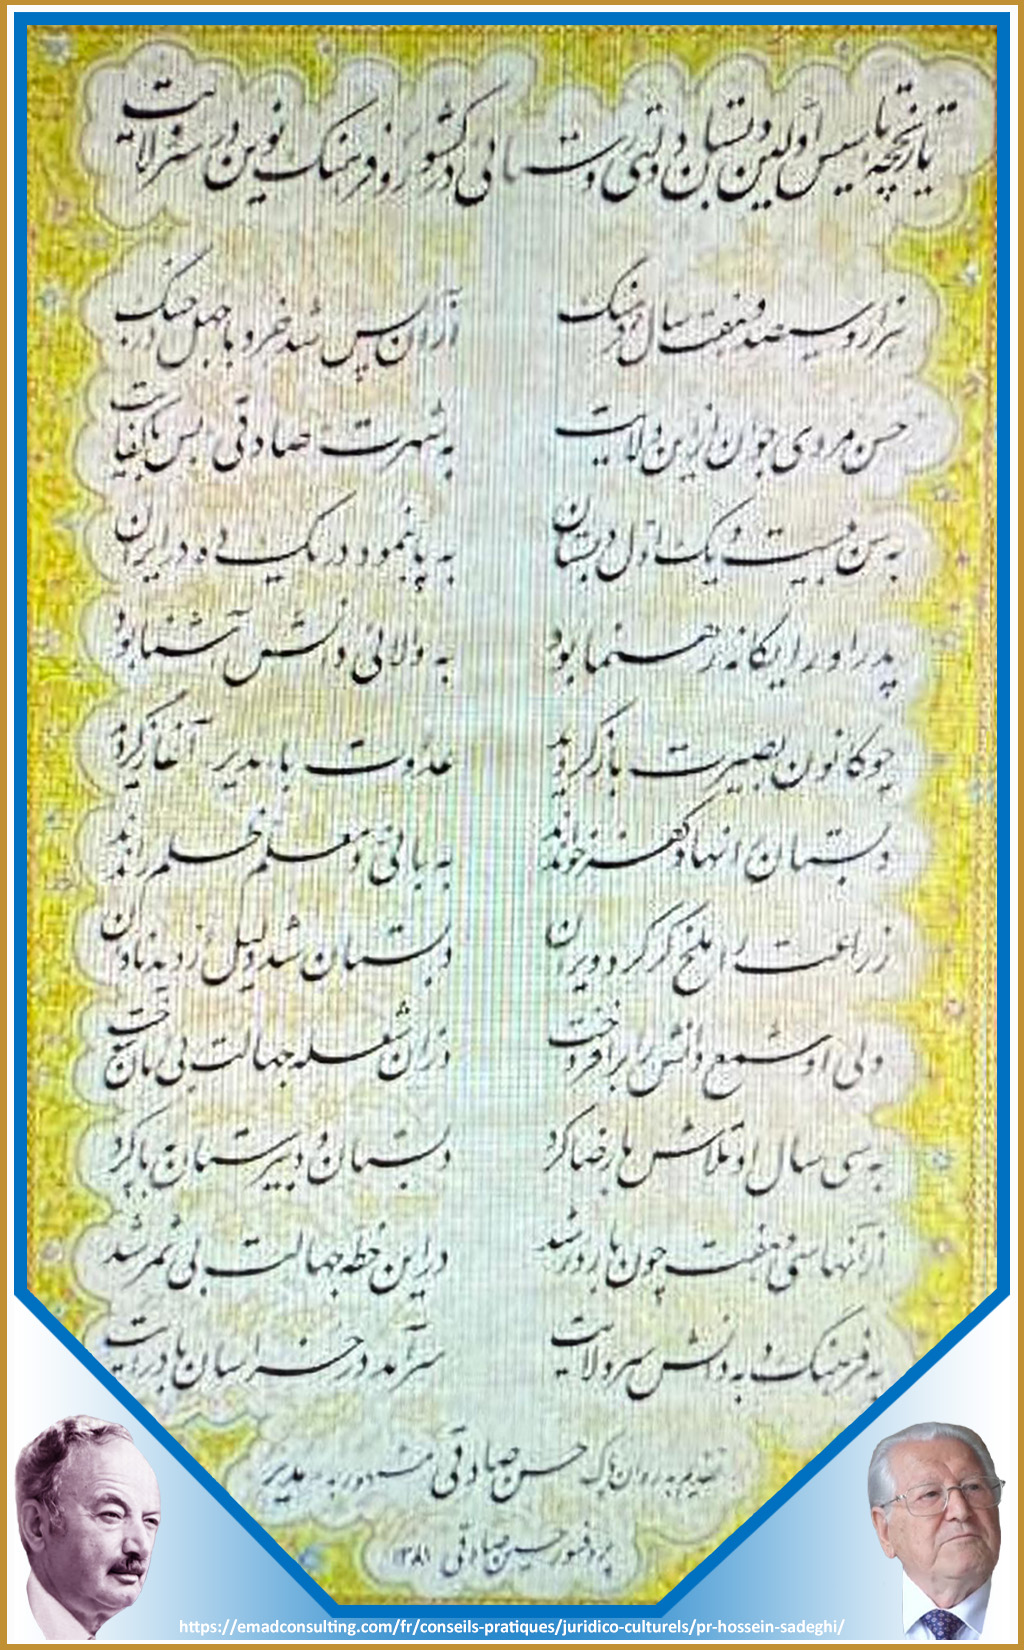 تاریخچه تاسیس اولین دبستان دولتی روستائی در کشور و فرهنگ نوین در سرولایت
هزار و سیصد و هفت سال فرهنگ از آن پس شد خرد با جهل در جنگ
حسن مردی جوان از این ولایت به شهرت صادقی بس با کفایت
به سن بیست و یک اول دبستان به پا بنمود در یک ده در ایران
پدر او را یگانه رهنما بود به والائی دانش آشنا بود
چو کانون بصیرت باز کردند عداوت با مدیر آغاز کردند
دبستان انهاد کفر خواندند به بانی و معلم ظلم راندند
زراعت را ملخ گر کرد ویران دبستان شد دلیل از دید نادان
ولی او شمع دانش را برافروخت در آن شعله جهالت بی امان سوخت
به سی سال او تلاش ها رضا کرد دبستان و دبیرستان بپا کرد
از آنها سی و هفت چون بارور شد در این خطه جهالت بی ثمر شد
به فرهنگ و به دانش سرولایت سرآمد در خراسان با درایت
تقدیم به روان پاک حسن صادقی مشهور به مدیر
پروفسور حسین صادقی ۱۳۸۱
https://emadconsulting.com/fr/conseils-pratiques/juridico-culturels/pr-hossein-sadeghi/